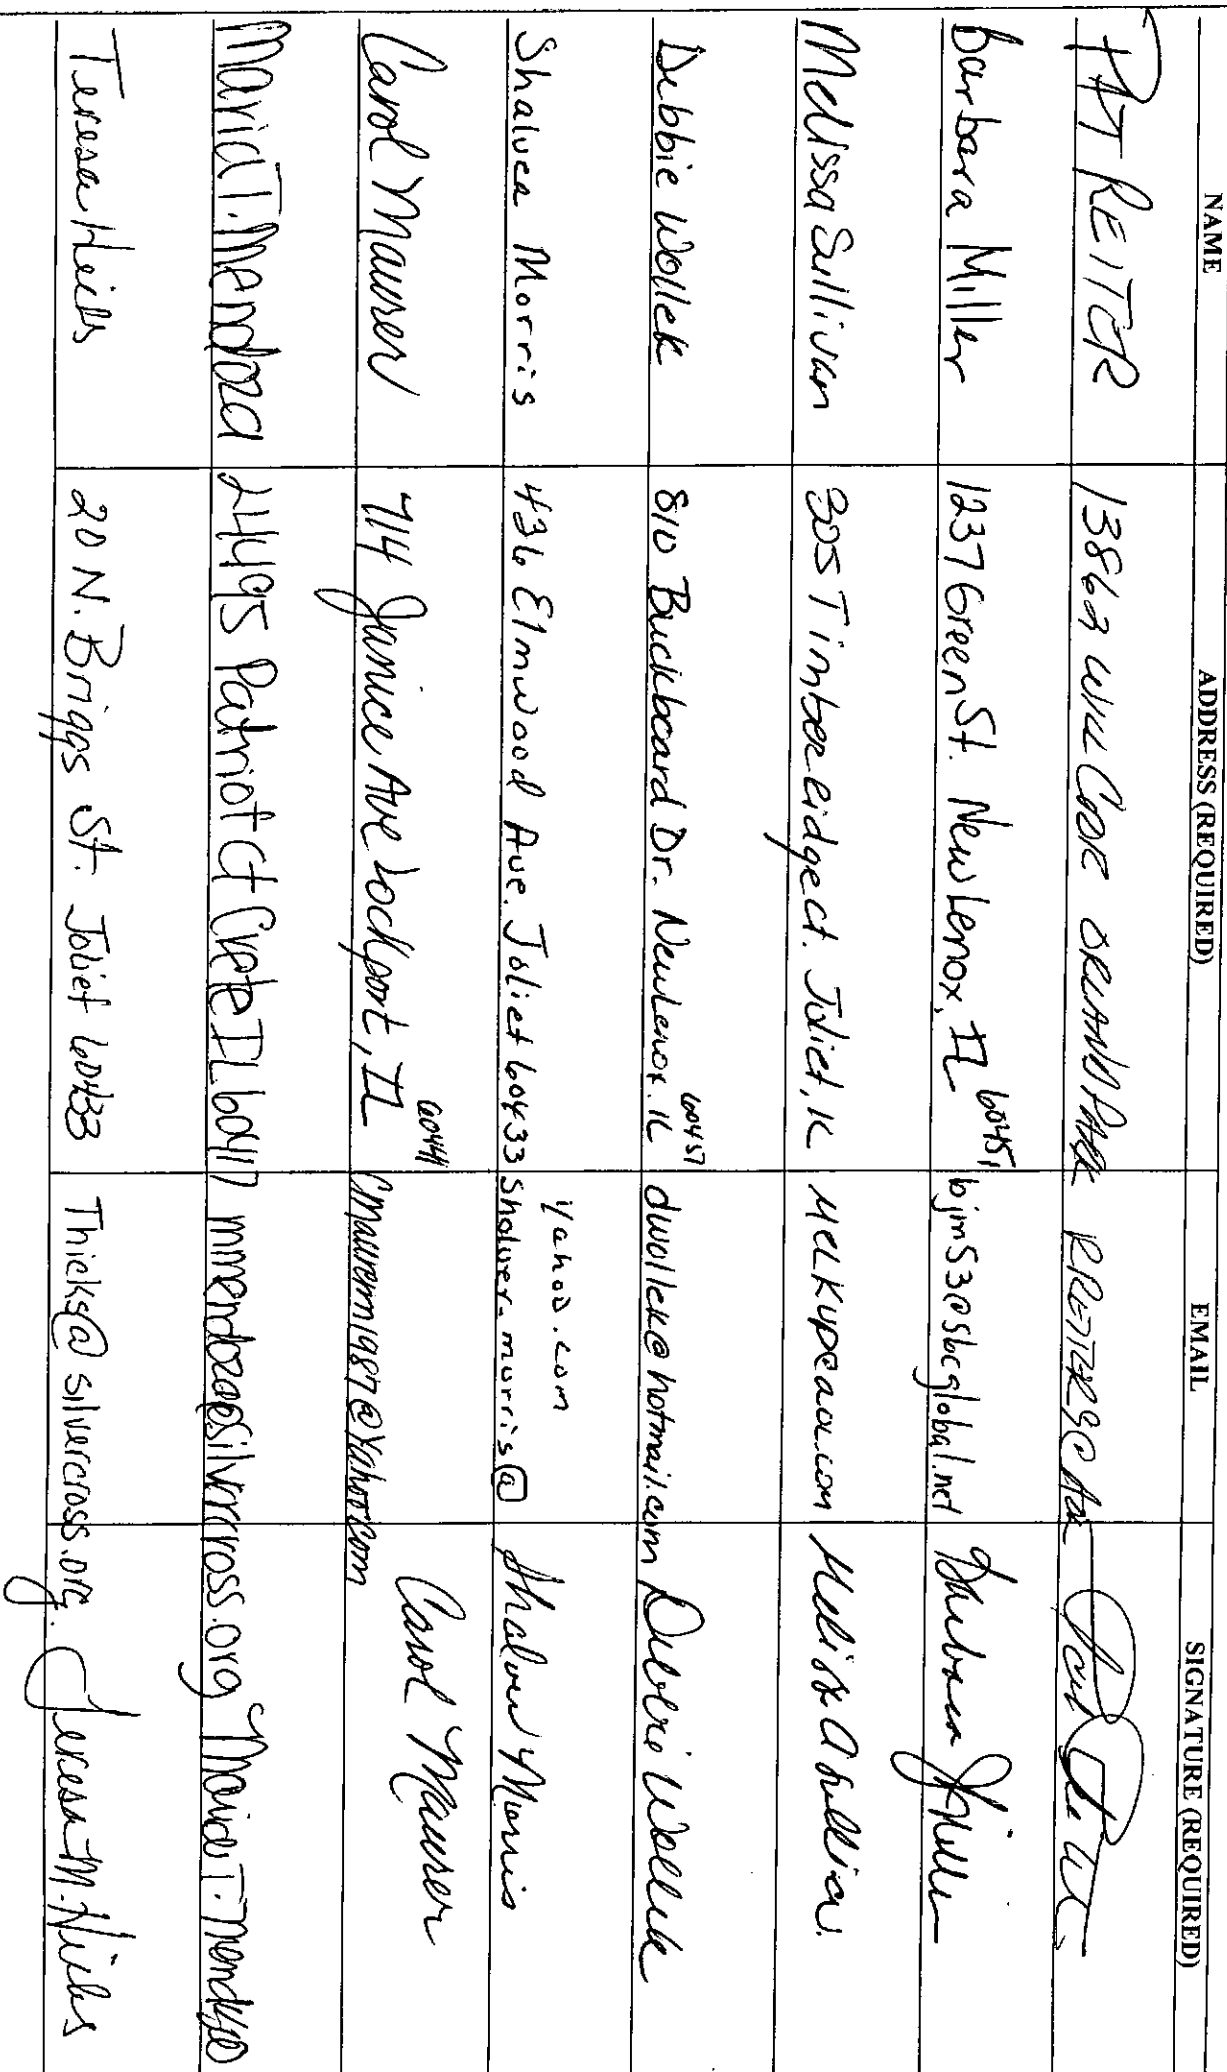 NAME ADDRESS (REQUIRED) EMAIL SIGNATURE (REQUIRED)
PAT REITER 13862 Will Cook ORLAND PARK
Barbara Miller 1237 Green St. New Lenox, IL 60451 bjm53@sbcglobal.net Barbara J Miller
Melissa Sullivan 305 Timbereidge ct. Joliet, IL MelKup@aol.com Melissa A Sullivan
Debbie Wollek 810 Buckboard Dr. New Lenox. IL 60451 dwollek@hotmail.com Debbie Wollek
Shalvea Morris 436 Elmwood Ave. Joliet 60433 Shalver-morris@ yahoo.com Morris
Carol Maurer 714 Janice Ave Lockport, IL 60441 Cmaurerm1987@Yahoo.com Carol Maurer
Maria T. Mendoza 24495 Patriot Ct Crete IL 60417 mmendoza@silvercross.org Maria T. Mendoza
Teresa 20 N. Briggs St. Joliet 60433 Thicks@silvercross.org. Teresa M.